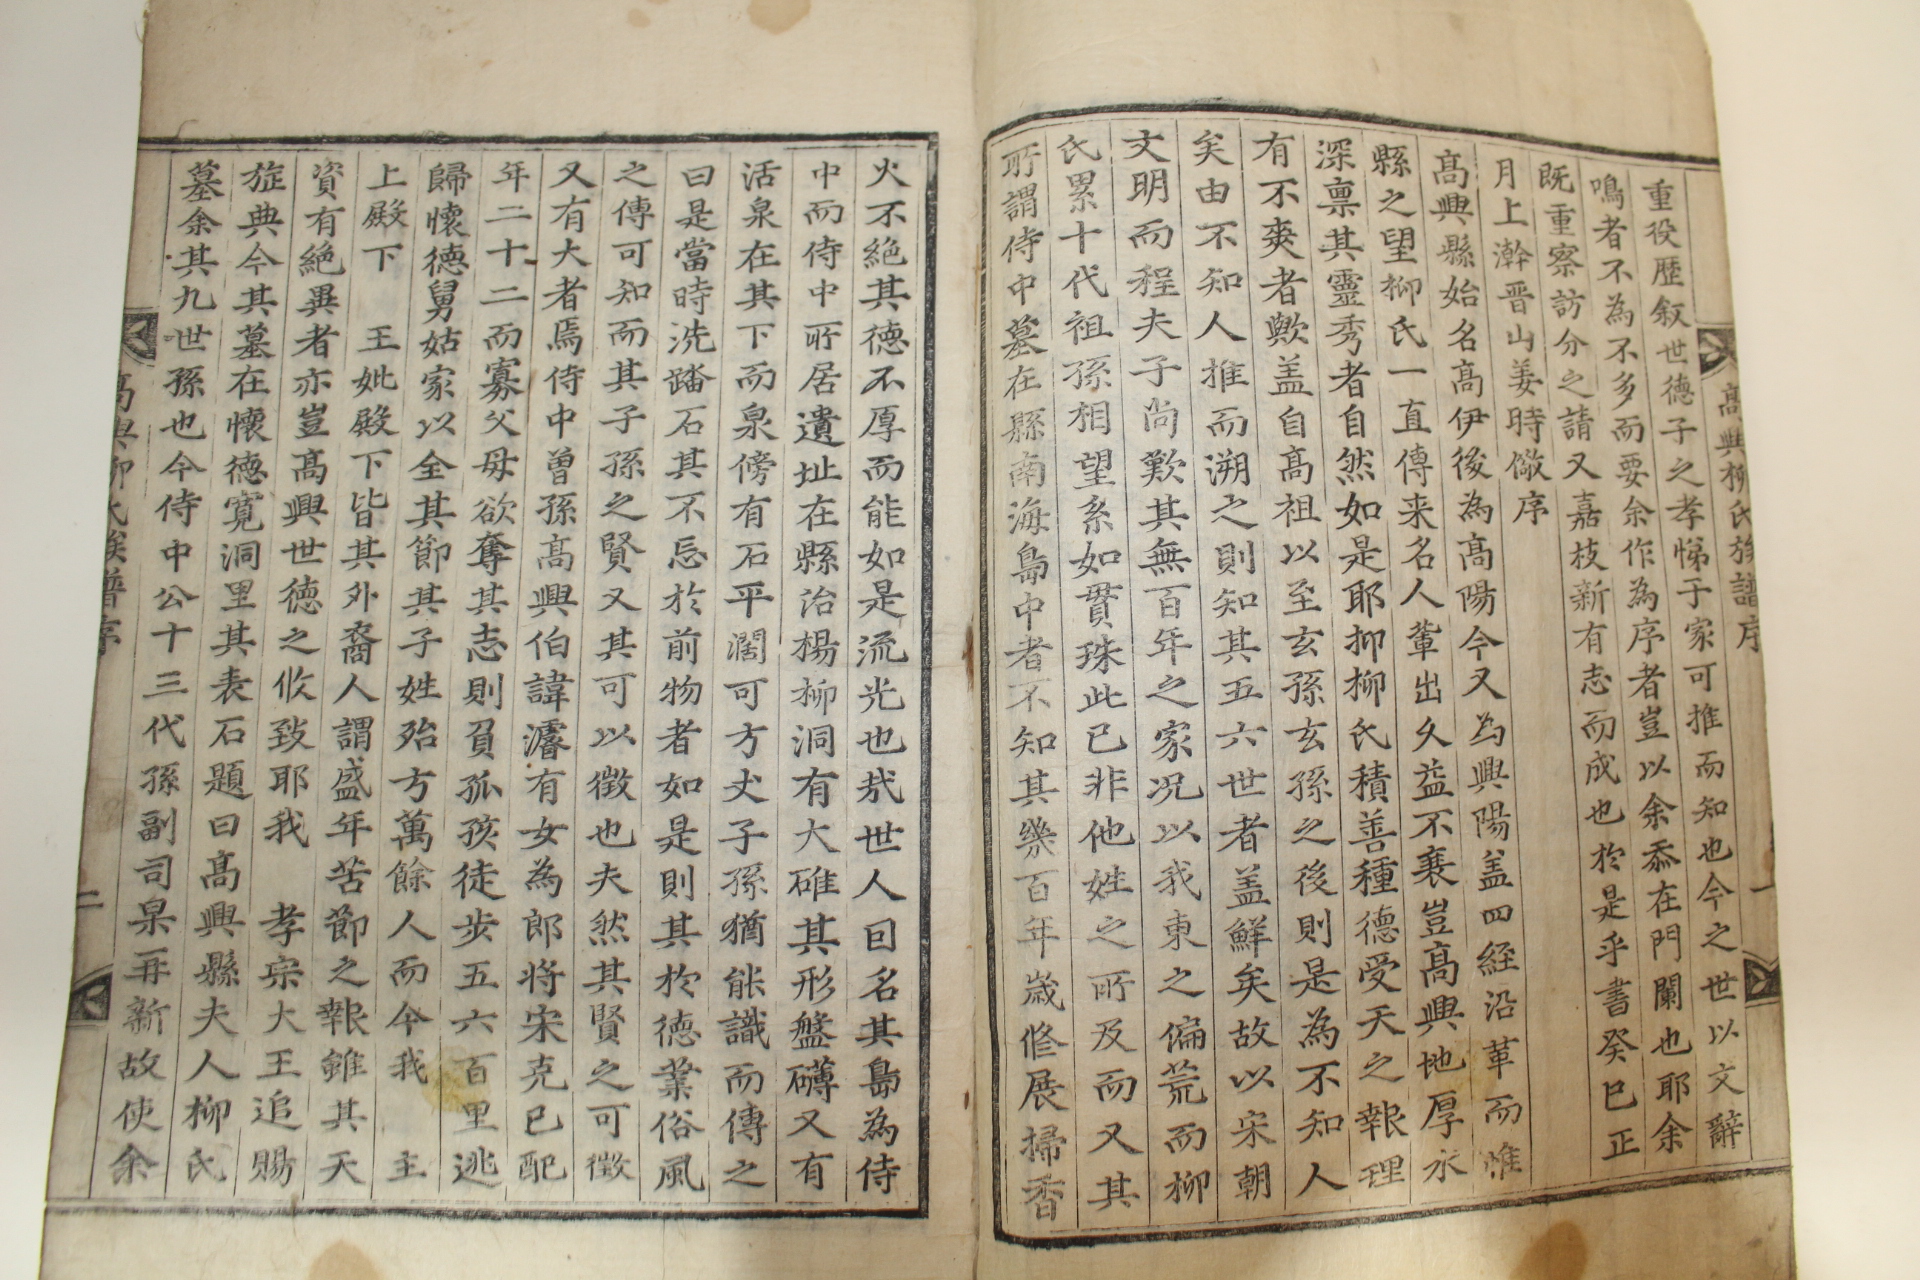 高興柳氏族譜序
一
重役歴叙世德子之孝悌于家可推而知也今之世以文辭
鳴者不為不多而要余作為序者豈以余忝在門闌也耶余
既重察訪分之請又嘉枝新有志而成也於是乎書癸巳正
月上澣晋山姜時儆序
髙興縣始名髙伊後為髙陽今又為興陽盖四経沿革而惟
縣之望柳氏一直傳来名人軰出久益不衰豈髙興地厚水
深禀其靈秀者自然如是耶抑柳氏積善種德受天之報理
有不爽者歟盖自髙祖以至玄孫玄孫之後則是為不知人
矣由不知人推而溯之則知其五六世者盖鮮矣故以宋朝
文明而程夫子尚歎其無百年之家况以我東之偏荒而柳
氏累十代祖孫相望系如貫珠此已非他姓之所及而又其
所謂侍中墓在縣南海島中者不知其幾百年歲修展掃香
火不絶其德不厚而能如是流光也㢤世人曰名其島為侍
中而侍中所居遺址在縣治楊柳洞有大碓其形盤礴又有
活泉在其下而泉傍有石平濶可方丈子孫猶能識而傳之
曰是當時洗踏石其不忘於前物者如是則其於德業俗風
之傳可知而其子孫之賢又其可以徴也夫然其賢之可徴
又有大者焉侍中曾孫髙興伯諱濬有女為郎将宋克已配
年二十二而寡父母欲奪其志則負孤孩徒步五六百里逃
歸懷德舅姑家以全其節其子姓殆方萬餘人而今我　主
上殿下　王妣殿下皆其外裔人謂盛年苦節之報雖其天
資有絶異者亦豈髙興世德之攸致耶我　孝宗大王追賜
旌典今其墓在懷德寛洞里其表石題曰髙興縣夫人柳氏
墓余其九世孫也今侍中公十三代孫副司果再新故使余
髙興柳氏族譜序
二